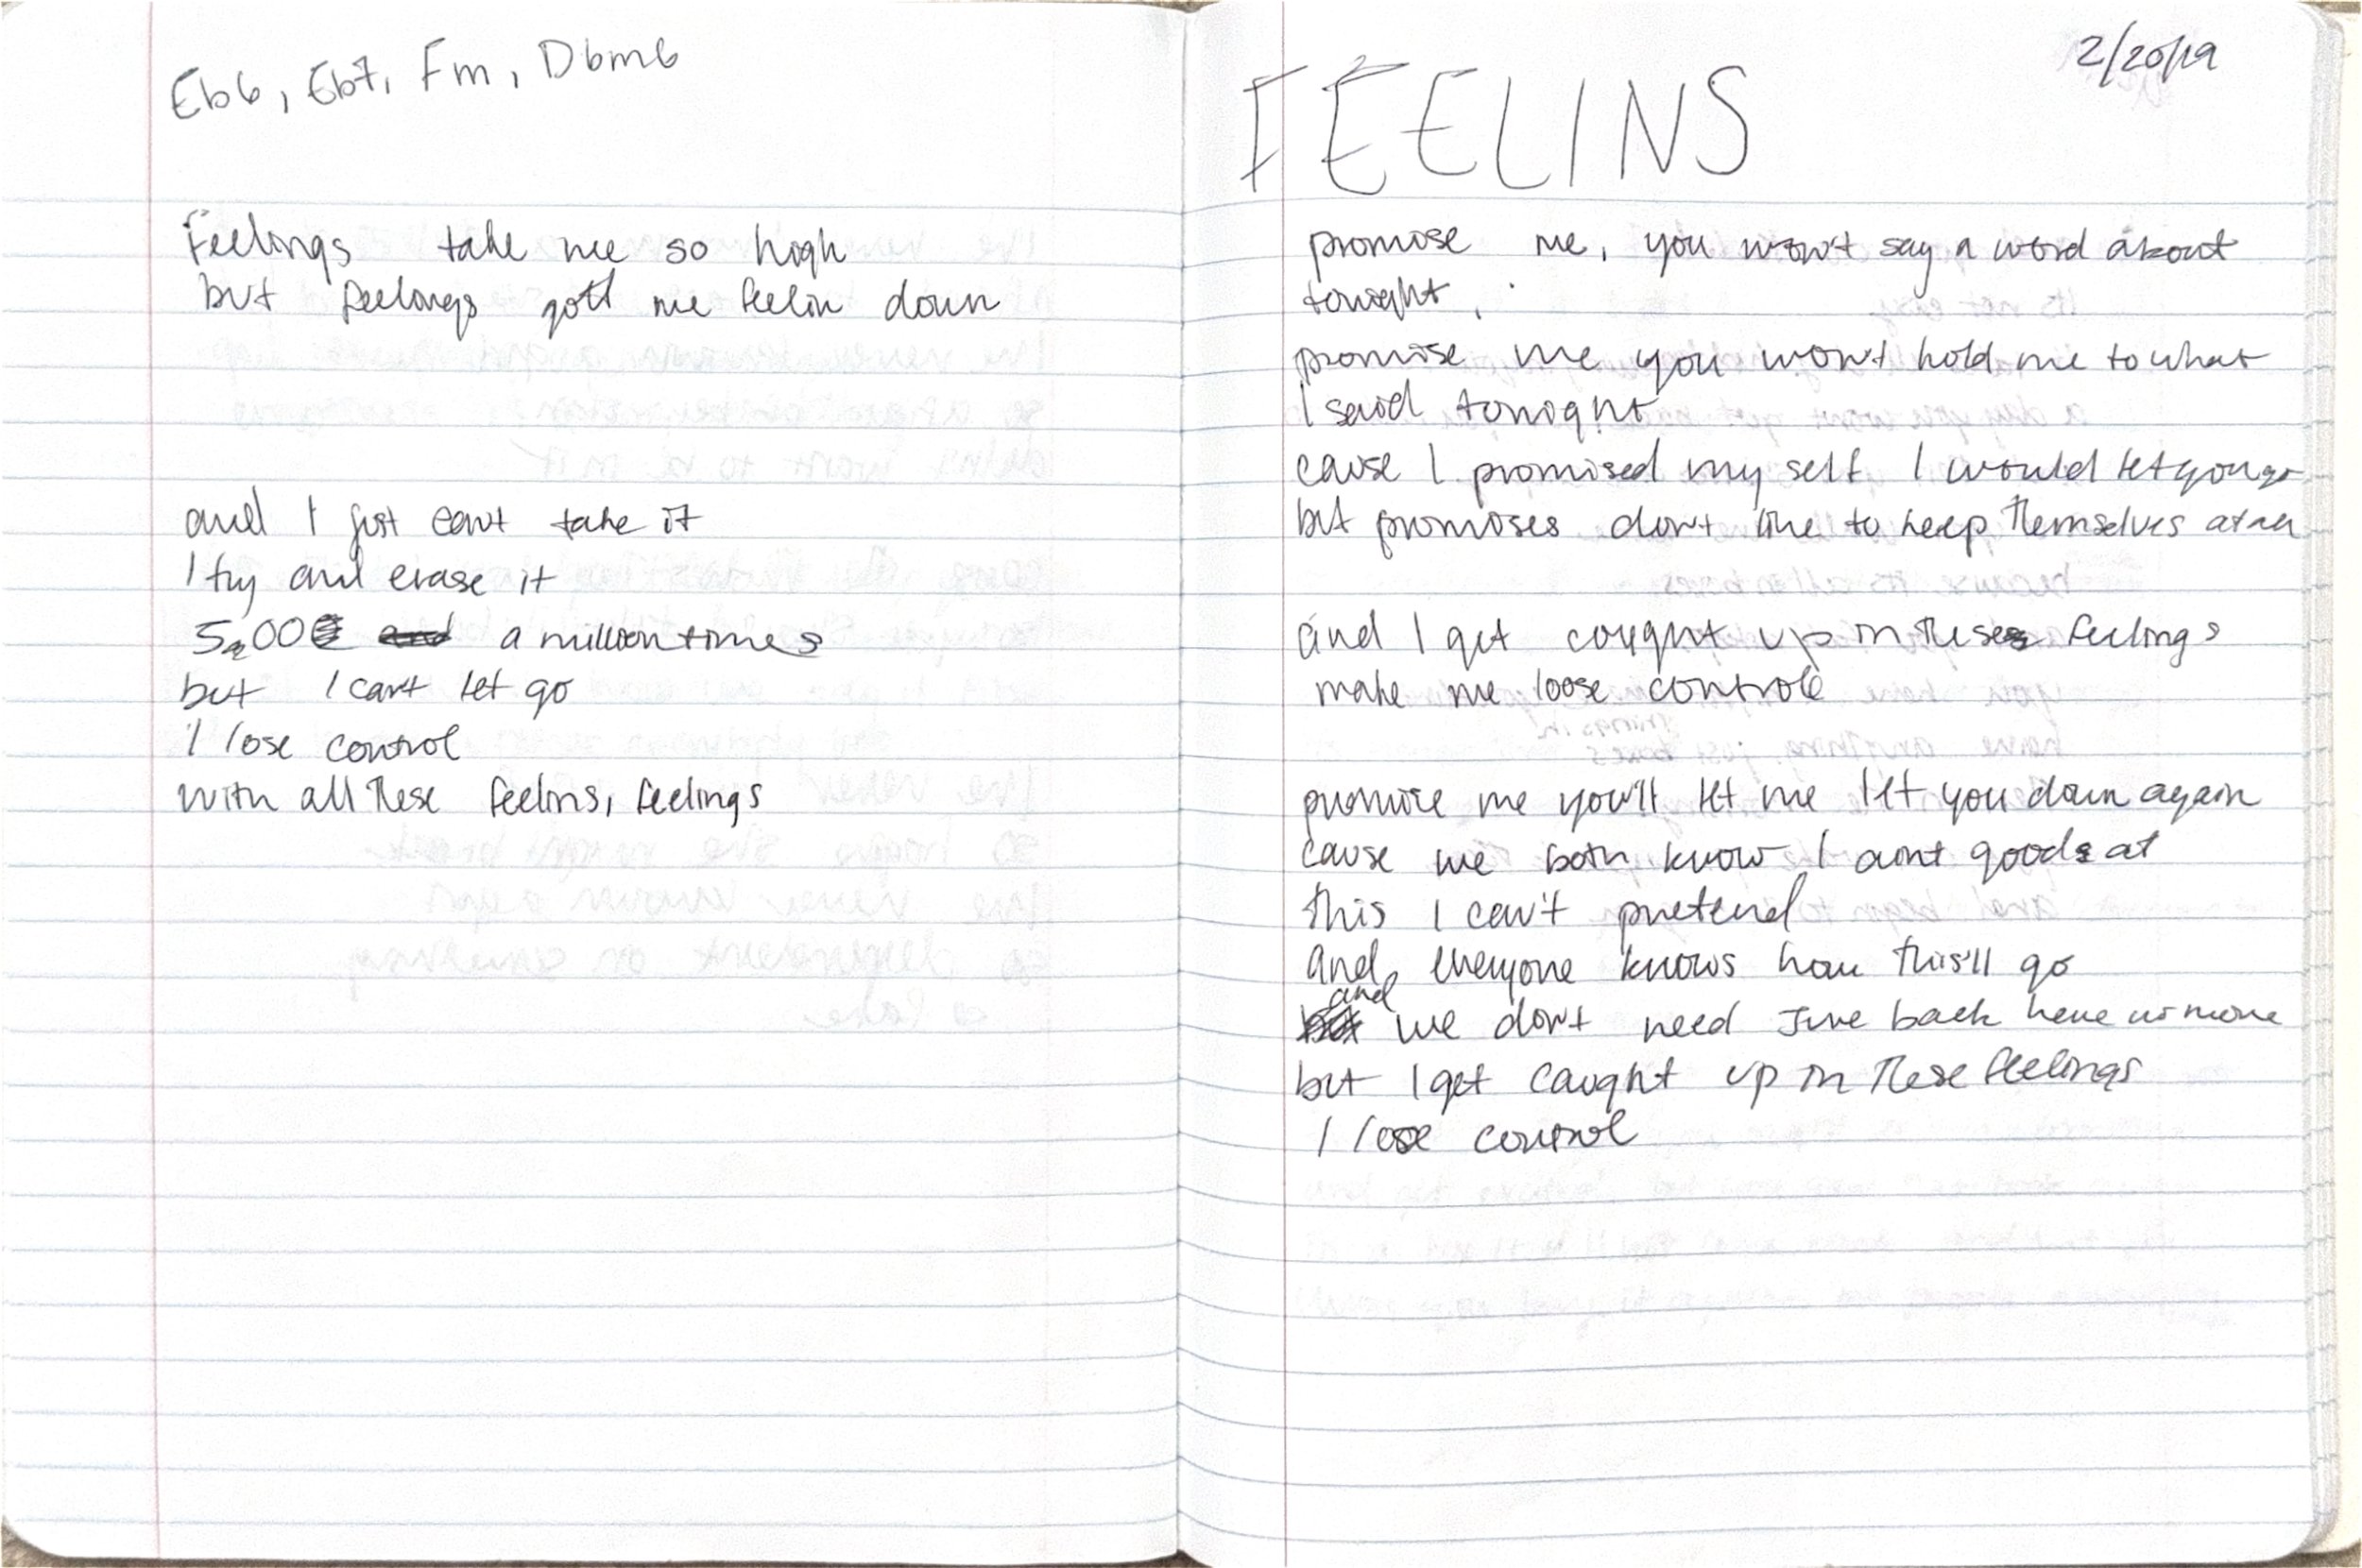 Eb6, Eb7, Fm, Dbm6
Feelings take me so high
but feelings gott me feelin down
and I just can't take it
I try and erase it
5,000 a million times
but I can't let go
I lose control
with all these feelins, feelings
2/20/19
FEELINS
promise me, you won't say a word about
tonight,
promise me you won't hold me to what
I said tonight
cause I promised my self I would let you go
but promises don't like to keep themselves at all
and I get caught up in these feelings
make me loose control
promise me you'll let me let you down again
cause we both know I aint good at
this I can't pretend
and everyone knows how this'll go
and
we don't need back here no more
but I get caught up in these feelings
I lose control